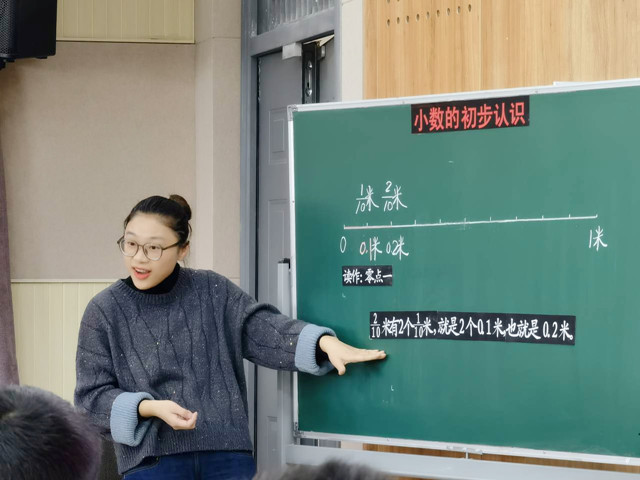 小数的初步认识
1/10米 2/10米
0 0.1米 0.2米 1米
读作:零点一
2/10米有2个1/10米,就是2个0.1米,也就是0.2米